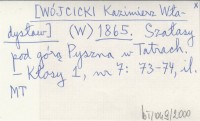 [WÓJCICKI Kazimierz Wła-
dysław] (W) 1865. Szałasy
pod górą Pyszną w Tatrach.
– Kłosy 1, nr 7: 73-74, il.
MT